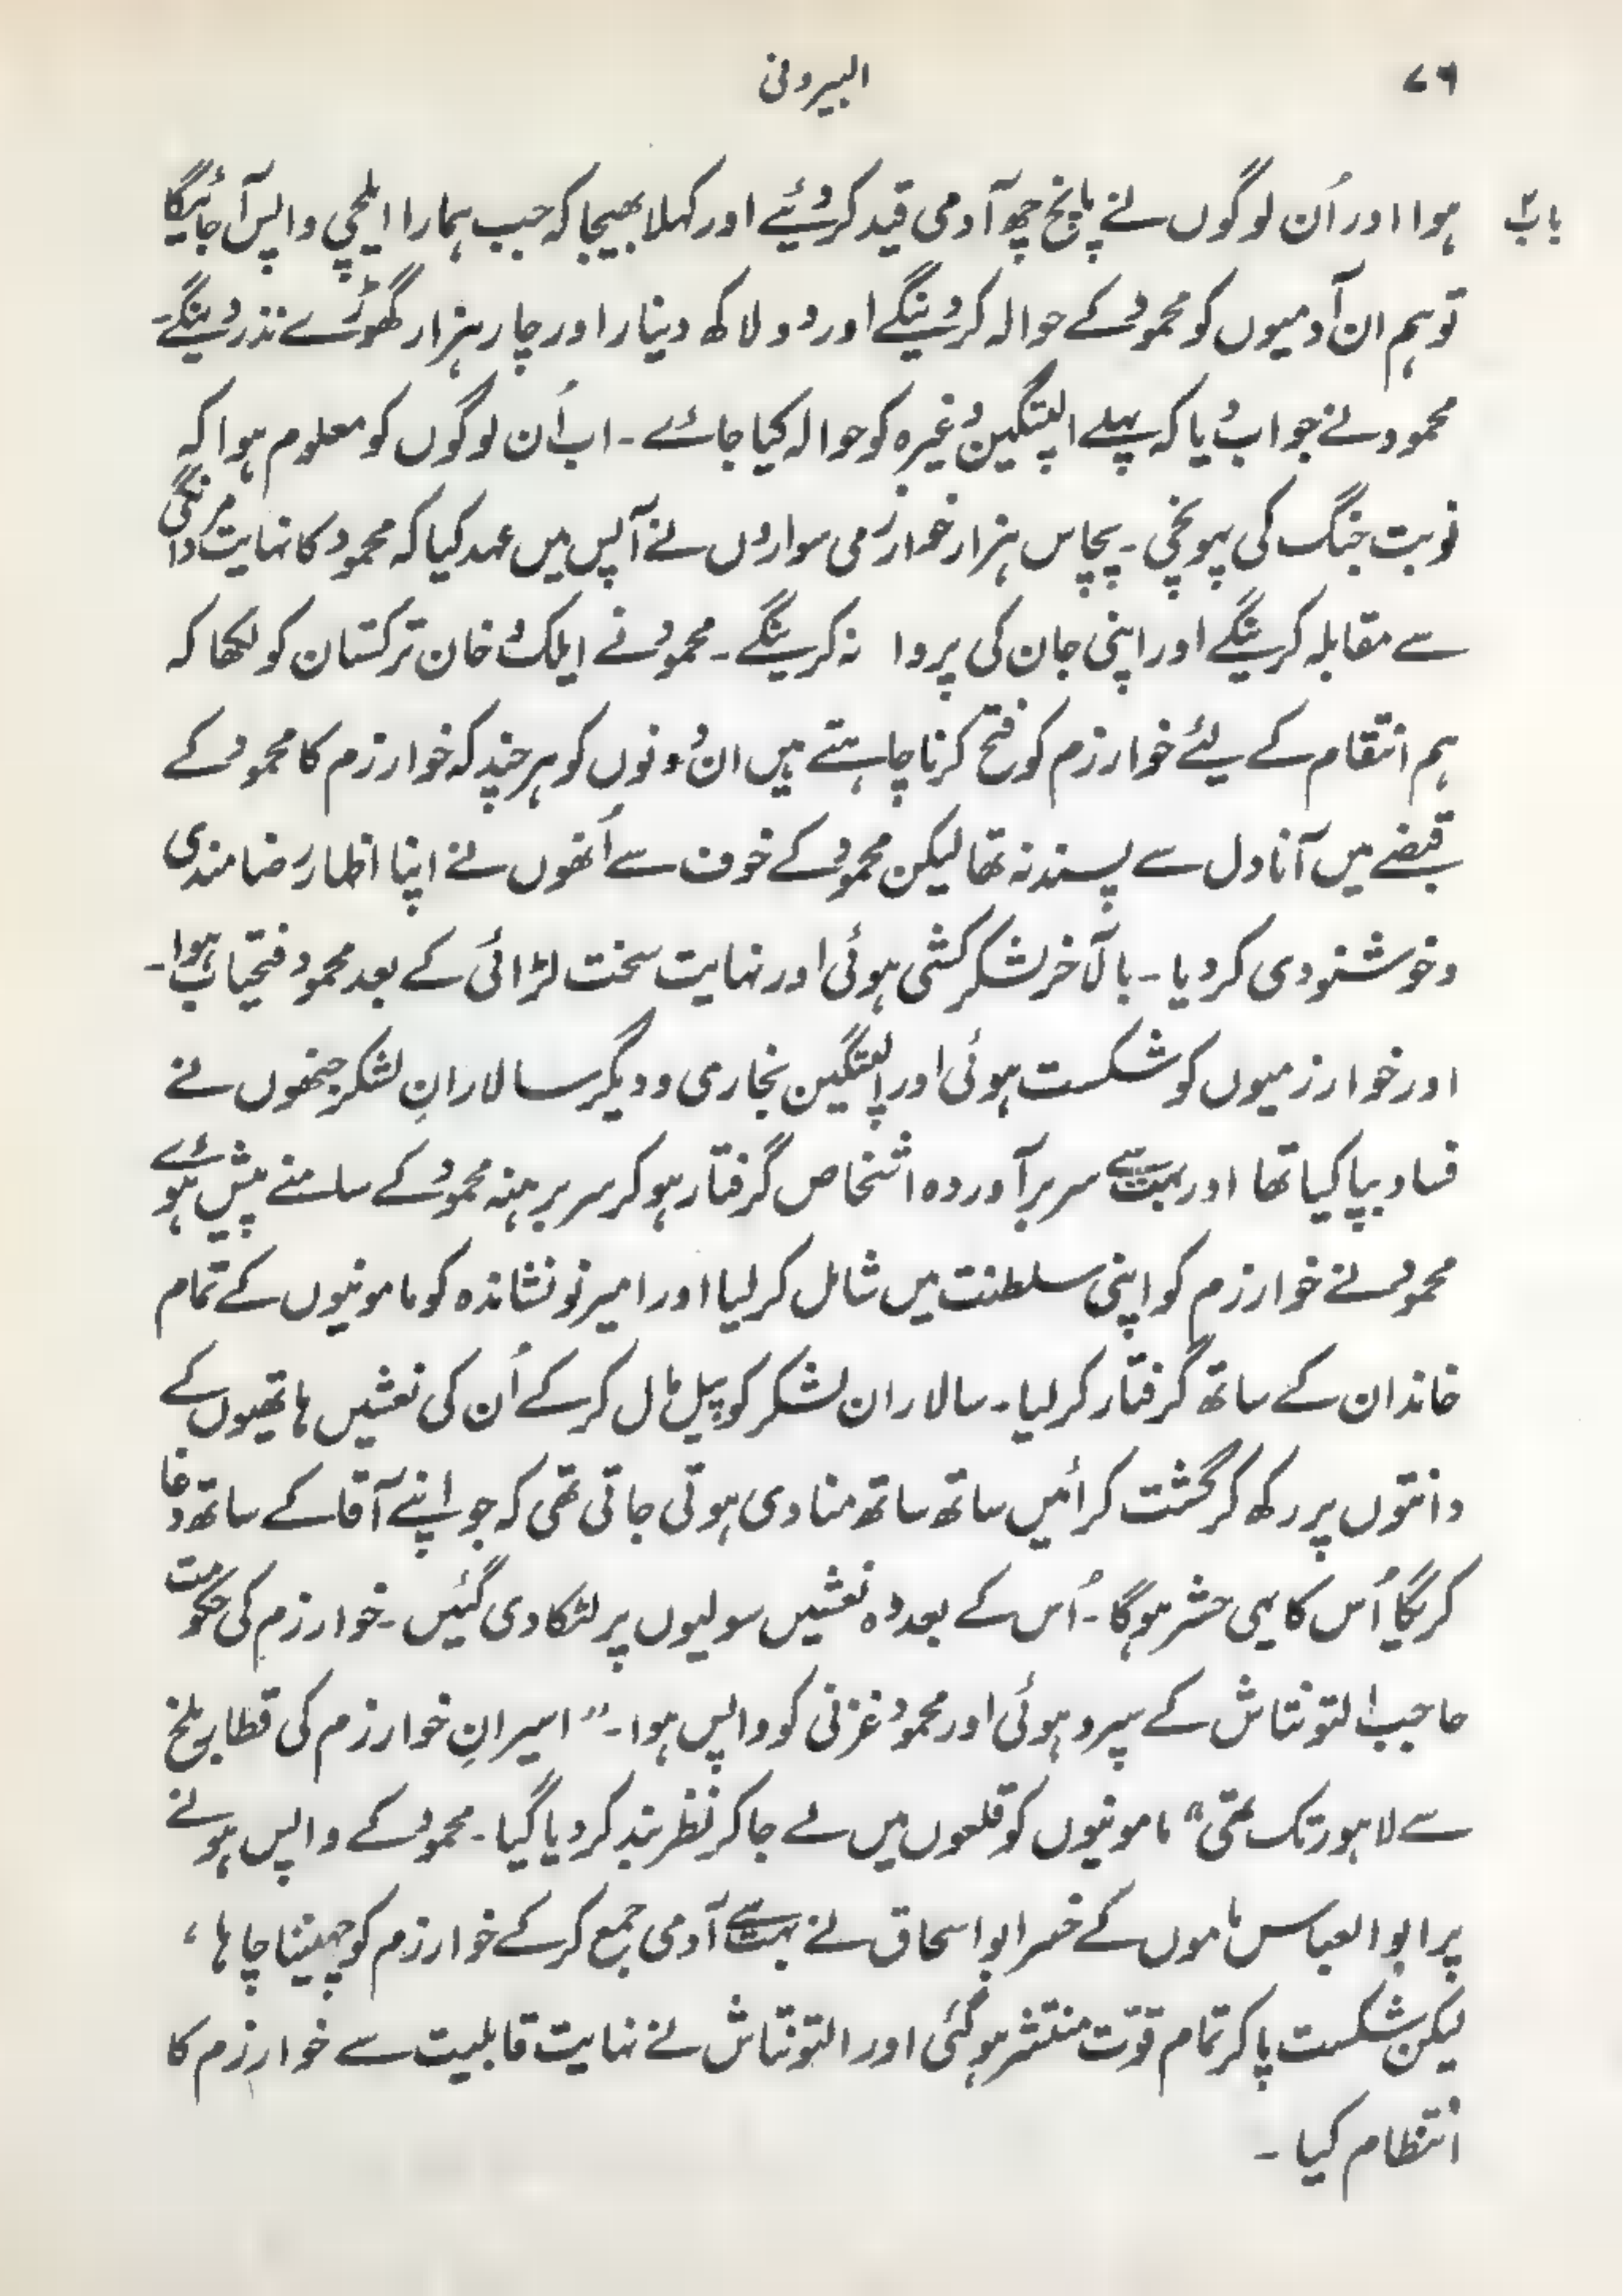 ۷۶ البیرونی
باب ہوا اور اُن لوگوں نے پانچ چھ آدمی قید کر دئیے اور کہلا بھیجا کہ جب ہمارا ایلچی واپس آ جائیگا
تو ہم ان آدمیوں کو محمود کے حوالہ کر دینگے اور دو لاکھ دینار اور چار ہزار گھوڑے نذر دینگے۔
محمود نے جواب دیا کہ پہلے الپتگین وغیرہ کو حوالہ کیا جائے۔ اب اُن لوگوں کو معلوم ہوا کہ
نوبت جنگ کی پہونچی۔ پچاس ہزار خوارزمی سواروں نے آپس میں عہد کیا کہ محمود کا نہایت مردانگی
سے مقابلہ کرینگے اور اپنی جان کی پروا نہ کرینگے۔ محمود نے ایلک و خان ترکستان کو لکھا کہ
ہم انتقام کے لیئے خوارزم کو فتح کرنا چاہتے ہیں ان دونوں کو ہر چند کہ خوارزم کا محمود کے
قبضے میں آنا دل سے پسند نہ تھا لیکن محمود کے خوف سے اُنھوں نے اپنا اظہار رضامندی
و خوشنودی کر دیا۔ بالآخر لشکر کشی ہوئی اور نہایت سخت لڑائی کے بعد محمود فتحیاب ہوا۔
اور خوارزمیوں کو شکست ہوئی اور الپتگین بخاری و دیگر سالارانِ لشکر جنھوں نے
فساد بپا کیا تھا اور بہت سے سربرآوردہ اشخاص گرفتار ہو کر سر برہنہ محمود کے سامنے پیش ہوئے
محمود نے خوارزم کو اپنی سلطنت میں شامل کر لیا اور امیر نو نشاندہ کو مامونیوں کے تمام
خاندان کے ساتھ گرفتار کر لیا۔ سالاران لشکر کو پیل مال کر کے اُن کی نعشیں ہاتھیوں کے
دانتوں پر رکھ کر گشت کرائیں ساتھ ساتھ منادی ہوتی جاتی تھی کہ جو اپنے آقا کے ساتھ دغا
کریگا اُس کا یہی حشر ہوگا۔ اُس کے بعد وہ نعشیں سولیوں پر لٹکا دی گئیں۔ خوارزم کی حکومت
حاجب التونتاش کے سپرد ہوئی اور محمود غزنی کو واپس ہوا۔ "اسیرانِ خوارزم کی قطار بلخ
سے لاہور تک تھی" مامونیوں کو قلعوں میں لے جا کر نظر بند کر دیا گیا۔ محمود کے واپس ہونے
پر ابو العباس ماموں کے خسر ابو اسحاق نے بہت سے آدمی جمع کر کے خوارزم کو چھیننا چاہا،
لیکن شکست پا کر تمام قوّت منتشر ہو گئی اور التونتاش نے نہایت قابلیت سے خوارزم کا
انتظام کیا۔